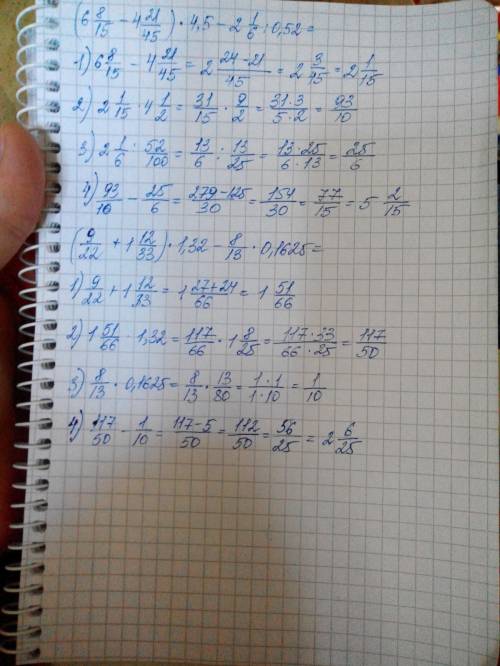 (6 8/15 - 4 21/45) · 4,5 - 2 1/6 : 0,52 =
1) 6 8/15 - 4 21/45 = 2 (24-21)/45 = 2 3/45 = 2 1/15
2) 2 1/15 · 4 1/2 = 31/15 · 9/2 = (31·3)/(5·2) = 93/10
3) 2 1/6 : 52/100 = 13/6 : 13/25 = (13·25)/(6·13) = 25/6
4) 93/10 - 25/6 = (279-125)/30 = 154/30 = 77/15 = 5 2/15
(9/22 + 1 12/33) · 1,32 - 8/13 · 0,1625 =
1) 9/22 + 1 12/33 = 1 (27+24)/66 = 1 51/66
2) 1 51/66 · 1,32 = 117/66 · 1 8/25 = (117·33)/(66·25) = 117/50
3) 8/13 · 0,1625 = 8/13 · 13/80 = (1·1)/(1·10) = 1/10
4) 117/50 - 1/10 = (117-5)/50 = 112/50 = 56/25 = 2 6/25